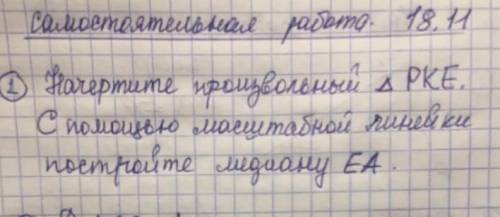 Самостоятельная работа. 18.11
① Начертите произвольный △ PKE.
С помощью масштабной линейки
постройте медиану EA.